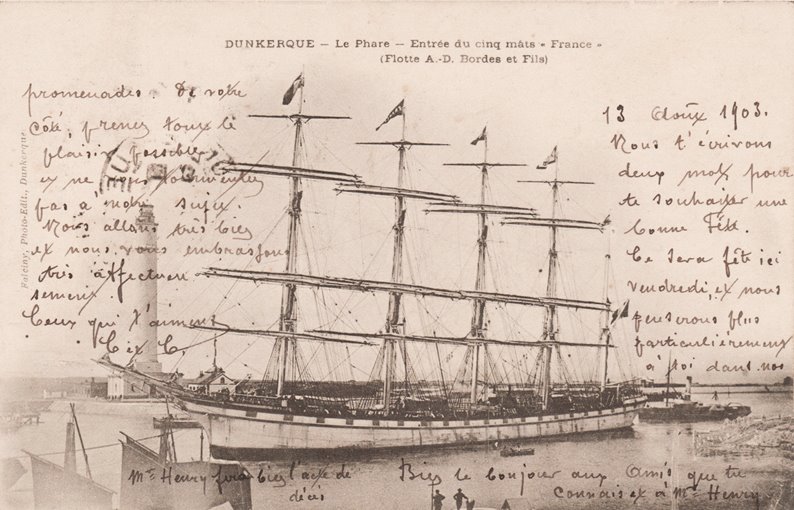 DUNKERQUE – Le Phare – Entrée du cinq mâts « France »
(Flotte A.-D. Bordes et Fils)
13 Août 1903.
Nous t'écrivons
deux mots pour
te souhaiter une
bonne Fête.
Ce sera fêté ici
vendredi, et nous
penserons plus
particulièrement
à toi dans nos
promenades. De votre
côté, prenez tout le
plaisir possible
et ne vous
pas à notre sujet.
Nous allons très bien
et nous vous embrassons
très affectueu-
sement.
Ceux qui t'aiment
C et C.
Bien le bonjour aux Amis que tu
connais et à Mme Henry
Mme Henry bien l'acte de
décès
Baleiny, Photo-Edit., Dunkerque